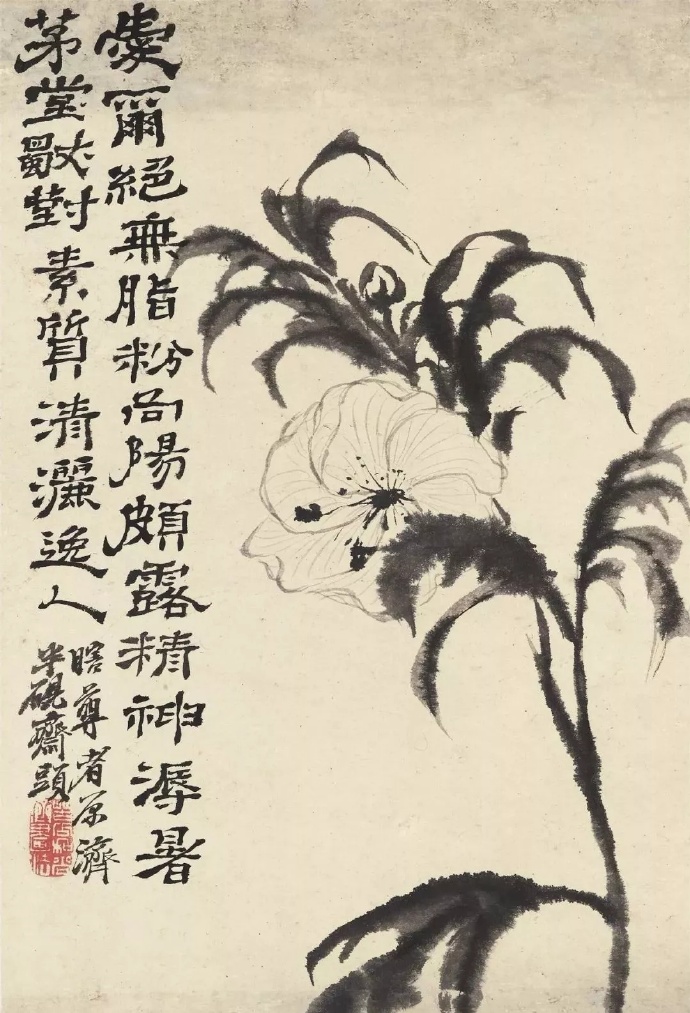 愛爾絕無脂粉向陽頗露精神溽暑
茅堂獨對素質清灑逸人
瞎尊者原濟
半硯齋頭